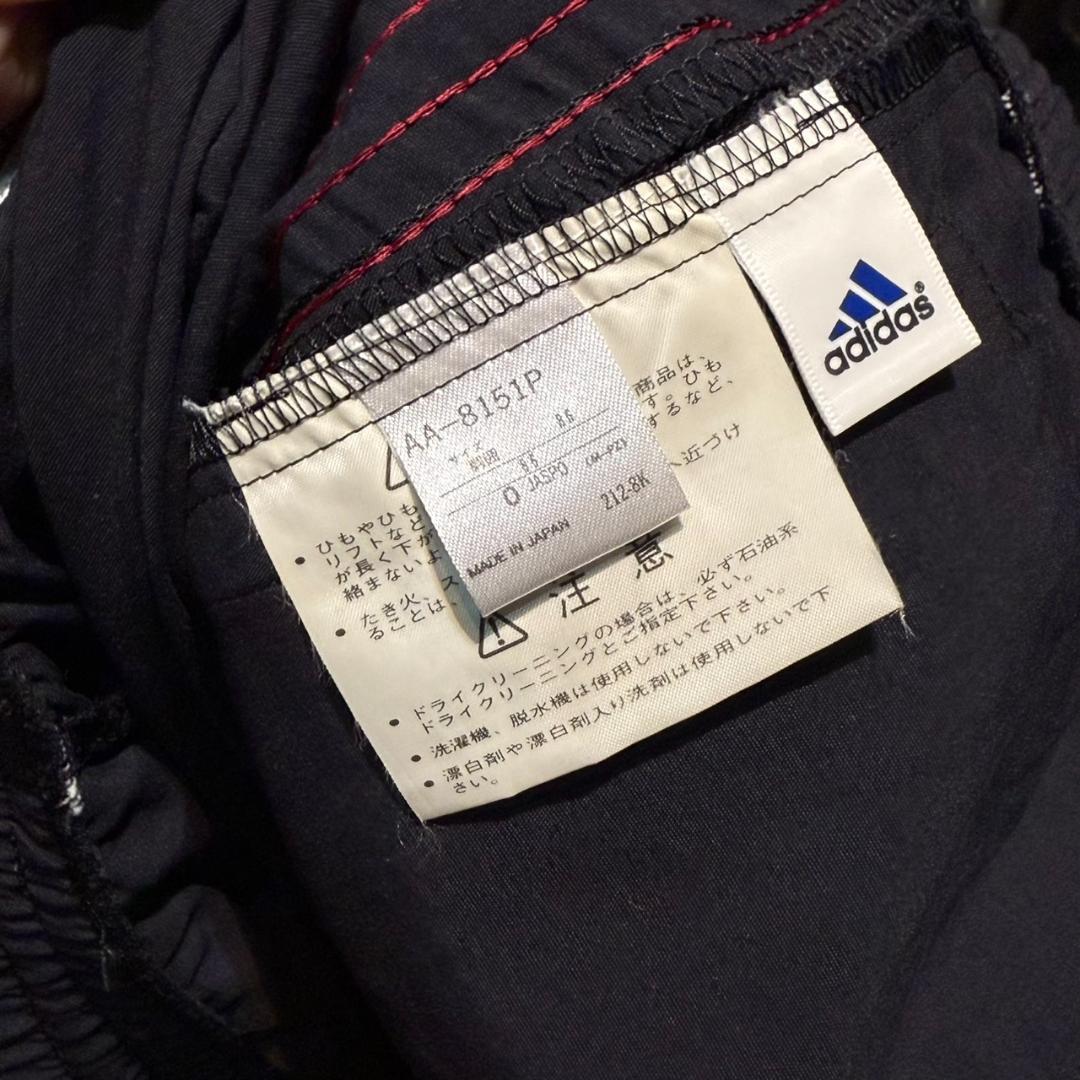 AA-8151P
サイズ 86
股下 83
O JASPO (M-PZ)
MADE IN JAPAN 212-8K
adidas®
商品は、
す。ひも
するなど、
へ近づけ
• ひもやひも
リフトなど
が長く下が
絡まないよ
• たき火、ス
ることは、
⚠ 注意
• ドライクリーニングの場合は、必ず石油系
ドライクリーニングとご指定下さい。
• 洗濯機、脱水機は使用しないで下さい。
• 漂白剤や漂白剤入り洗剤は使用しないで下
さい。